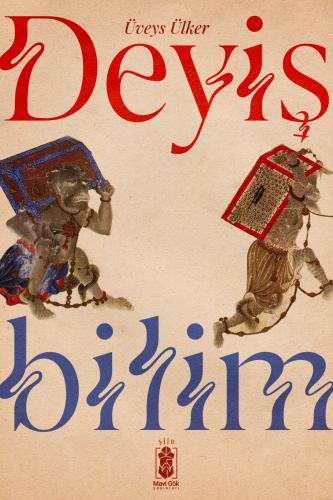 Üveys Ülker
Deyiş
bilim
şiir
Mavi Gök
yayınları